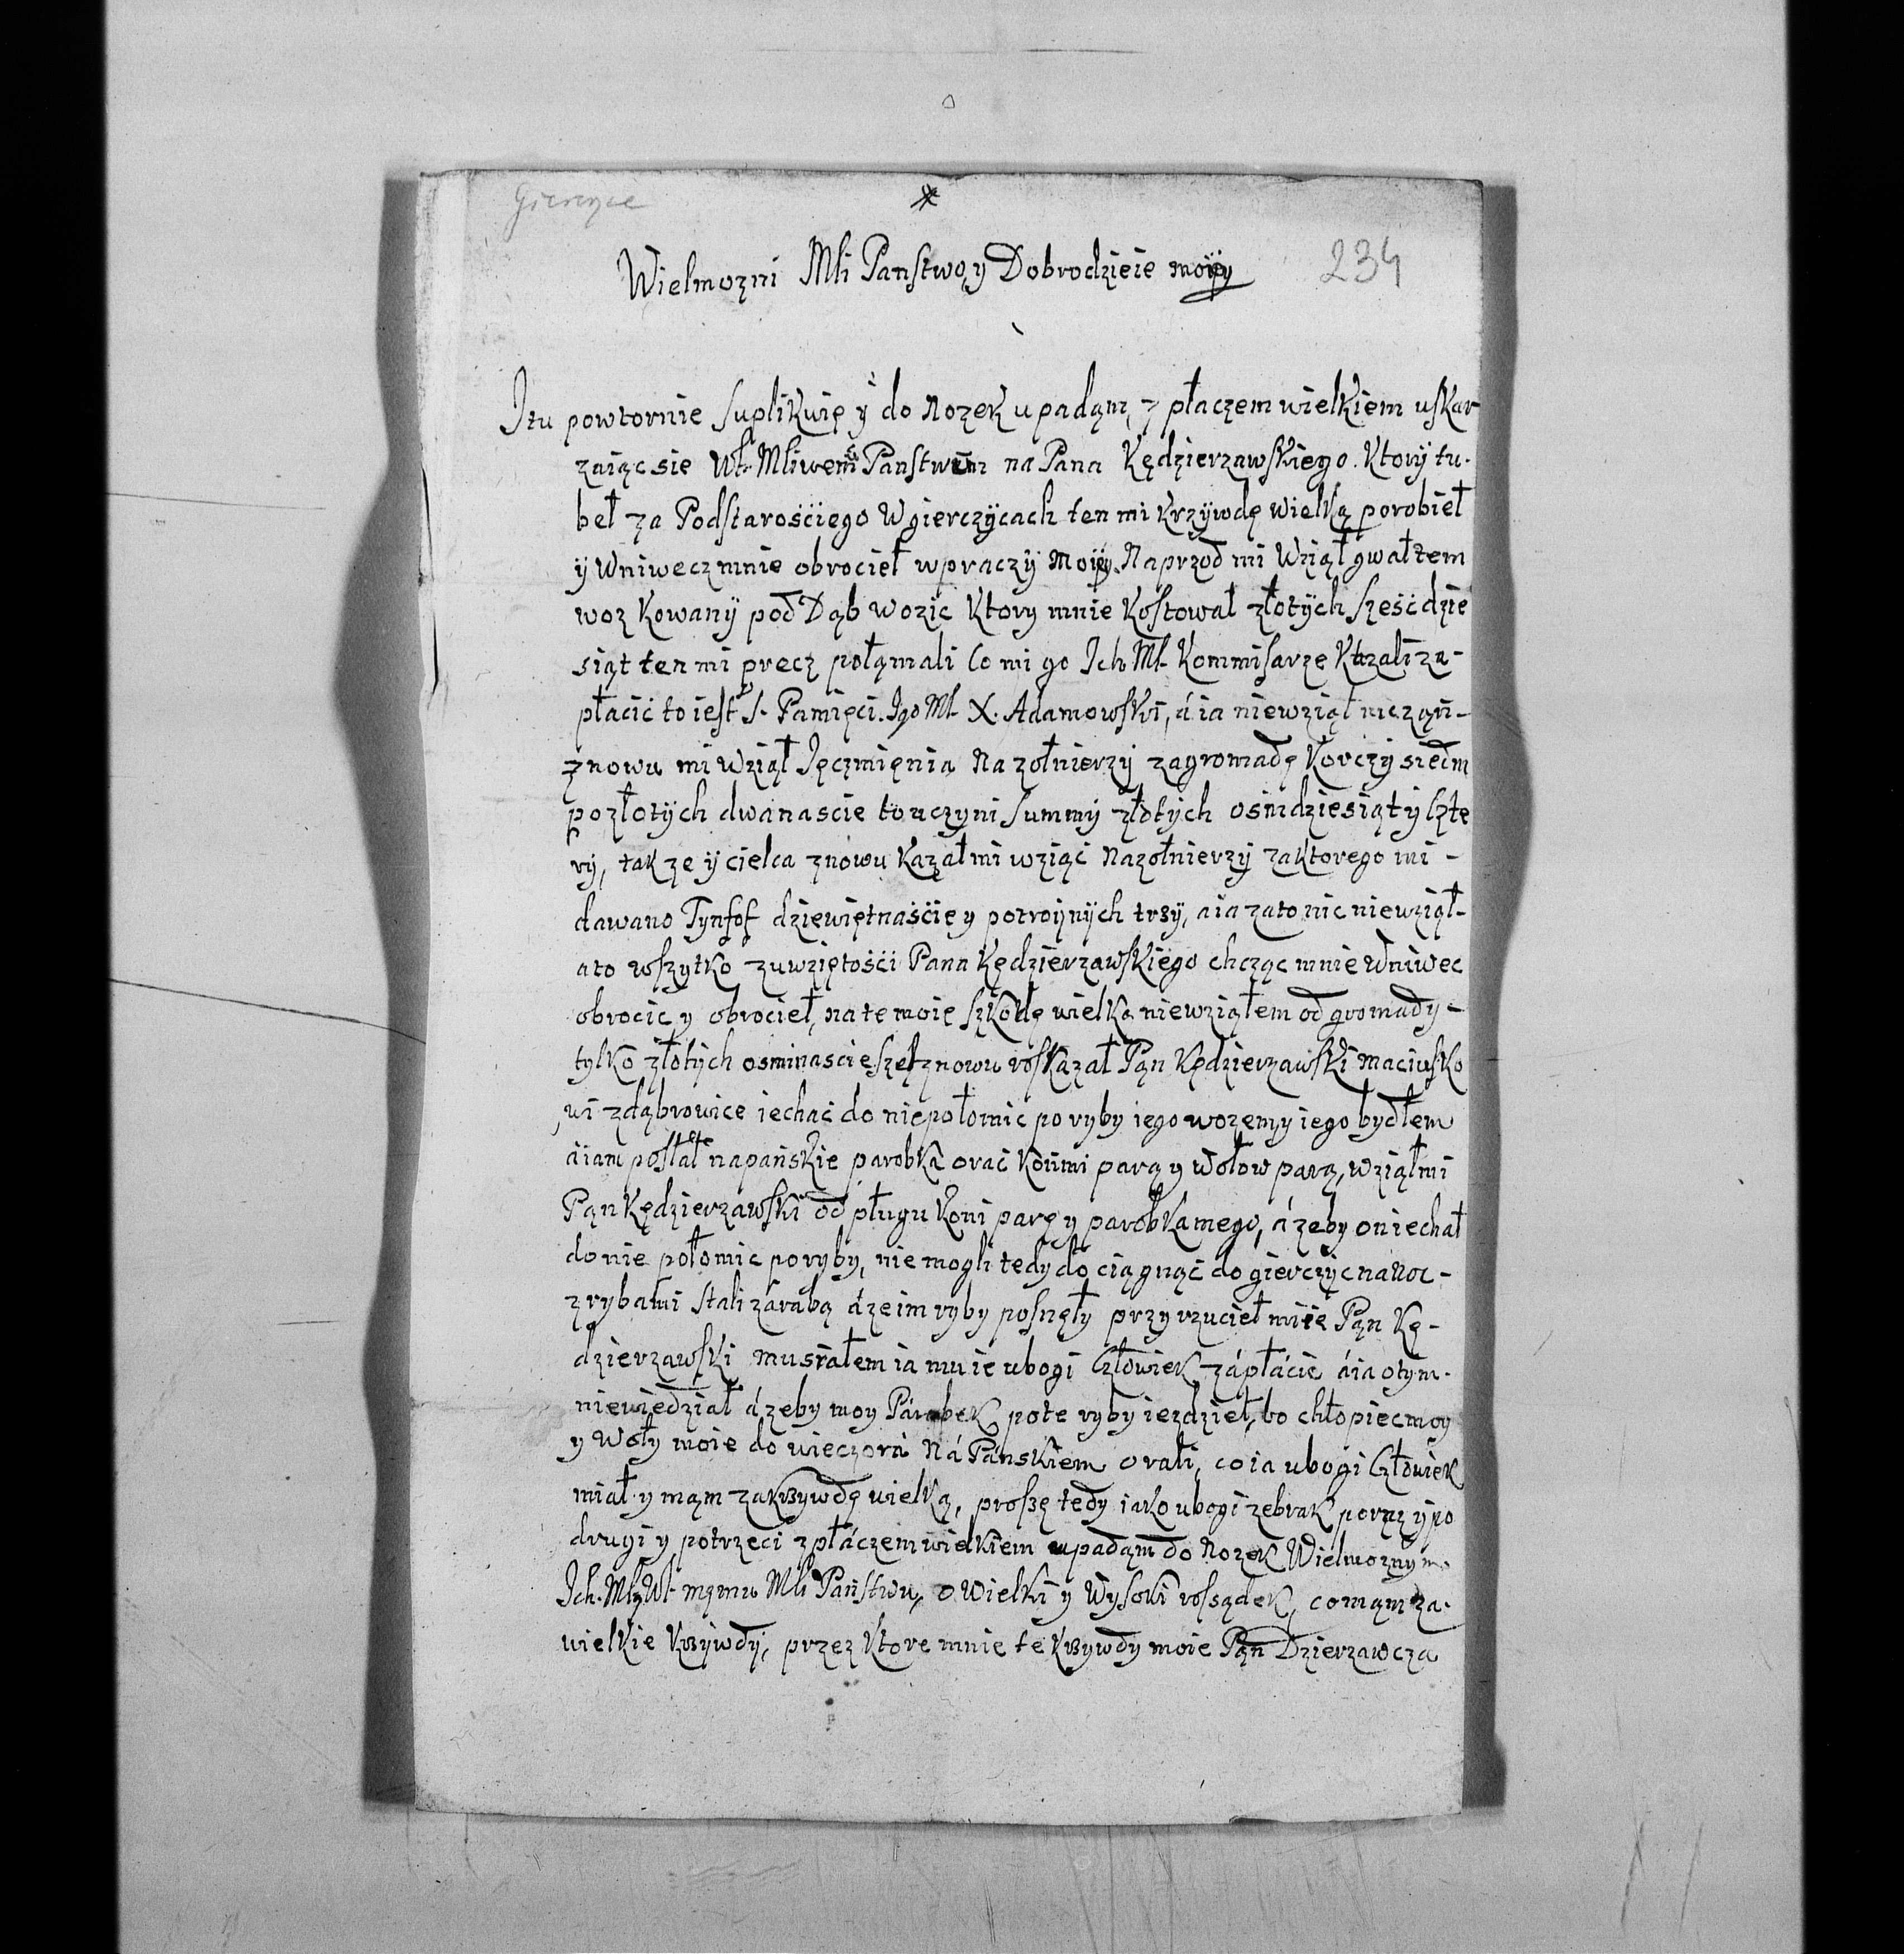 Gierczyce
234
Wielmozni Mli Panstwo y Dobrodzieie moiy
Itu powtornie suplikuię ÿ do Nozek upadąm, z płaczem wielkiem uskar
zaiąc sie Wł. Mliwem Panstwum na Pana Kędzierzawskiego. Ktory tu.
beł za Podstarościego W gierczÿcach ten mi Krzÿwdę wielką porobieł
ÿ Wniwecz mnie obrocieł w praczÿ Moiÿ. Naprzod mi Wziął gwałtem
woz Kowanÿ pod Dąb wozic Ktory mnie Kosztował złotÿch sześcdzie
siąt ten mi precz połąmali Co mi go Ich Mł. Kommisarze Kazali za-
płacic to iest S. Pamięci. Igo Mł. X. Adamowski, á ia niewziął nic zań-
znowu mi Wziął Ięczmięnią Na zołnierzÿ zagromadę Korczÿ siedm
pozłotÿch dwanascie to uczyni summÿ złotÿch osmdziesiąt ÿ Czte
rÿ, tak ze ÿ cielca znowu Kazał mi wziąć Nazołnierzÿ zaktorego mi -
dawano Tynfof dziewiętnaście y potroÿnÿch trzÿ, a ia zato nic niewziął-
ato wszytko zuwziętości Pana Kędzierzawskiego chcąc mnie Wniwec
obrocic y obrocieł, na te moię szkodę wielką niewziąłem od gromady -
tylko złotÿch osminascie szeł znowu roskazał Pąn Kędzierzawski Maciusko
wi zdąbrowice iechać do niepołomic po ryby iego wozem y iego bydłem
á iam posłał napańskie parobką orać Końmi parą y wołow parą, wziął mi
Pąn Kędzierzawski od pługu Koni parę y parobka mego, á zeby on iechał
do nie połomic poryby, nie mogli tedy do ciągnąć do gierczyc na Noc -
z rybami stali zarabą áze im ryby posnęły przyrzucieł mi ie Pąn Kę-
dzierzawski musiałem ia mu ie ubogi Człowiek zápłácic áia otym.
niewiedział á zeby moy Párobek pote ryby iezdzieł, bo chłopiec moy
y woły moie do wieczora Ná Pánskiem orali, co ia ubogi Człowiek
miał y mąm zakrzywdę wielką, proszę tedy iako ubogi zebrak porąz y po
drugi y potrzeci zpłáczem wielkiem upadąm do Nozek Wielmoznym.
Ich. Mł Wł męmu Mli Państwu, o Wielki y Wysoki rossądek, co mąm za.
wielkie Krzywdÿ, przez Ktore mnie te Krzywdy moie Pąn Dzierzawcza